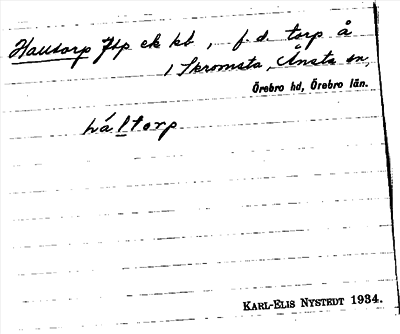 Hallstorp Jtp ek kb, f. d. torp å
1 Skromsta, Ånsta sn,
Örebro hd, Örebro län.
håltorp
KARL-ELIS NYSTEDT 1934.